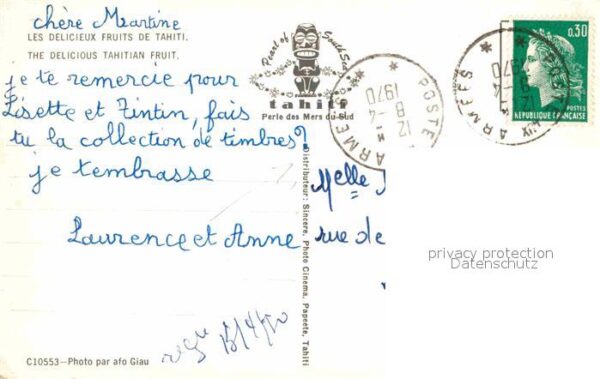 chère Martine
LES DELICIEUX FRUITS DE TAHITI.
THE DELICIOUS TAHITIAN FRUIT.
je te remercie pour
Lisette et Tintin, fais
tu la collection de timbres?
je t'embrasse
Laurence et Anne
reçu 15/4/70
C10553—Photo par afo Giau
Pearl of South Sea
tahiti
Perle des Mers du Sud
Distributeur: Sincere, Photo Cinema, Papeete, Tahiti
POSTE
12 H
8-4
1970
ARMEES
0,30
POSTES
REPUBLIQUE FRANÇAISE
POSTE AUX ARMEES
12 H
8-4
1970
Melle
rue de
privacy protection
Datenschutz